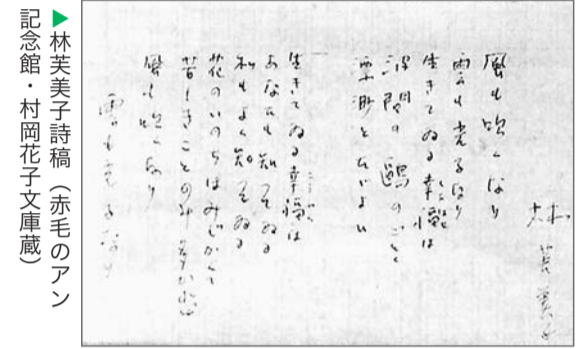 林 芙美子
風も吹くなり
雲も光るなり
生きてゐる幸福は
波間の鷗のごとく
漂渺とたゞよひ
生きてゐる幸福は
あなたも知ってゐる
私もよく知ってゐる
花のいのちはみじかくて
苦しきことのみ多かれど
風も吹くなり
雲も光るなり
▶林芙美子詩稿（赤毛のアン
記念館・村岡花子文庫蔵）